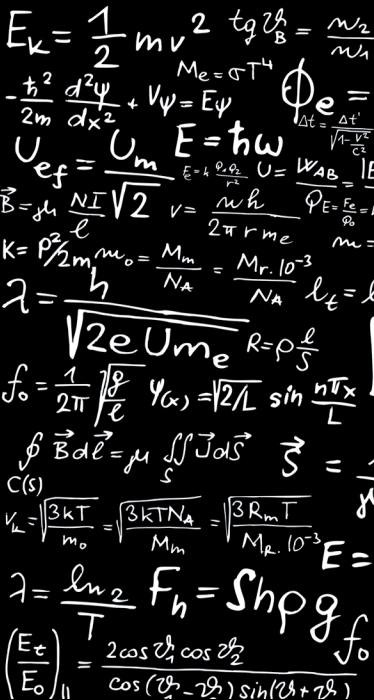 E_k = 1/2 mv²
tg ϑ_B = n₂/n₁
M_e = σT⁴
-ħ²/2m d²ψ/dx² + Vψ = Eψ
Φ_e =
Δt = Δt'/√(1-v²/c²)
U_ef = U_m/√2
E = ħω
U = W_AB/
φ_E = F_e/
B⃗ = μ NI/ℓ
v = nh/2πrm_e
K = p²/2m
m₀ = M_m/N_A = M_r.10⁻³/N_A
λ = h/√(2eUm_e)
R = ρ ℓ/S
f₀ = 1/2π √(g/ℓ)
ψ(x) = √(2/L) sin nπx/L
∮ B⃗dℓ⃗ = μ ∬ J⃗dS⃗
C(S) S
S⃗ =
v_k = √(3kT/m₀) = √(3kTN_A/M_m) = √(3R_mT/M_R.10⁻³)
E =
λ = ln2/T
F_h = Shρg
f₀
(E_t/E₀)_|| = 2cosϑ₁cosϑ₂/cos(ϑ₁-ϑ₂)sin(ϑ₁+ϑ₂)